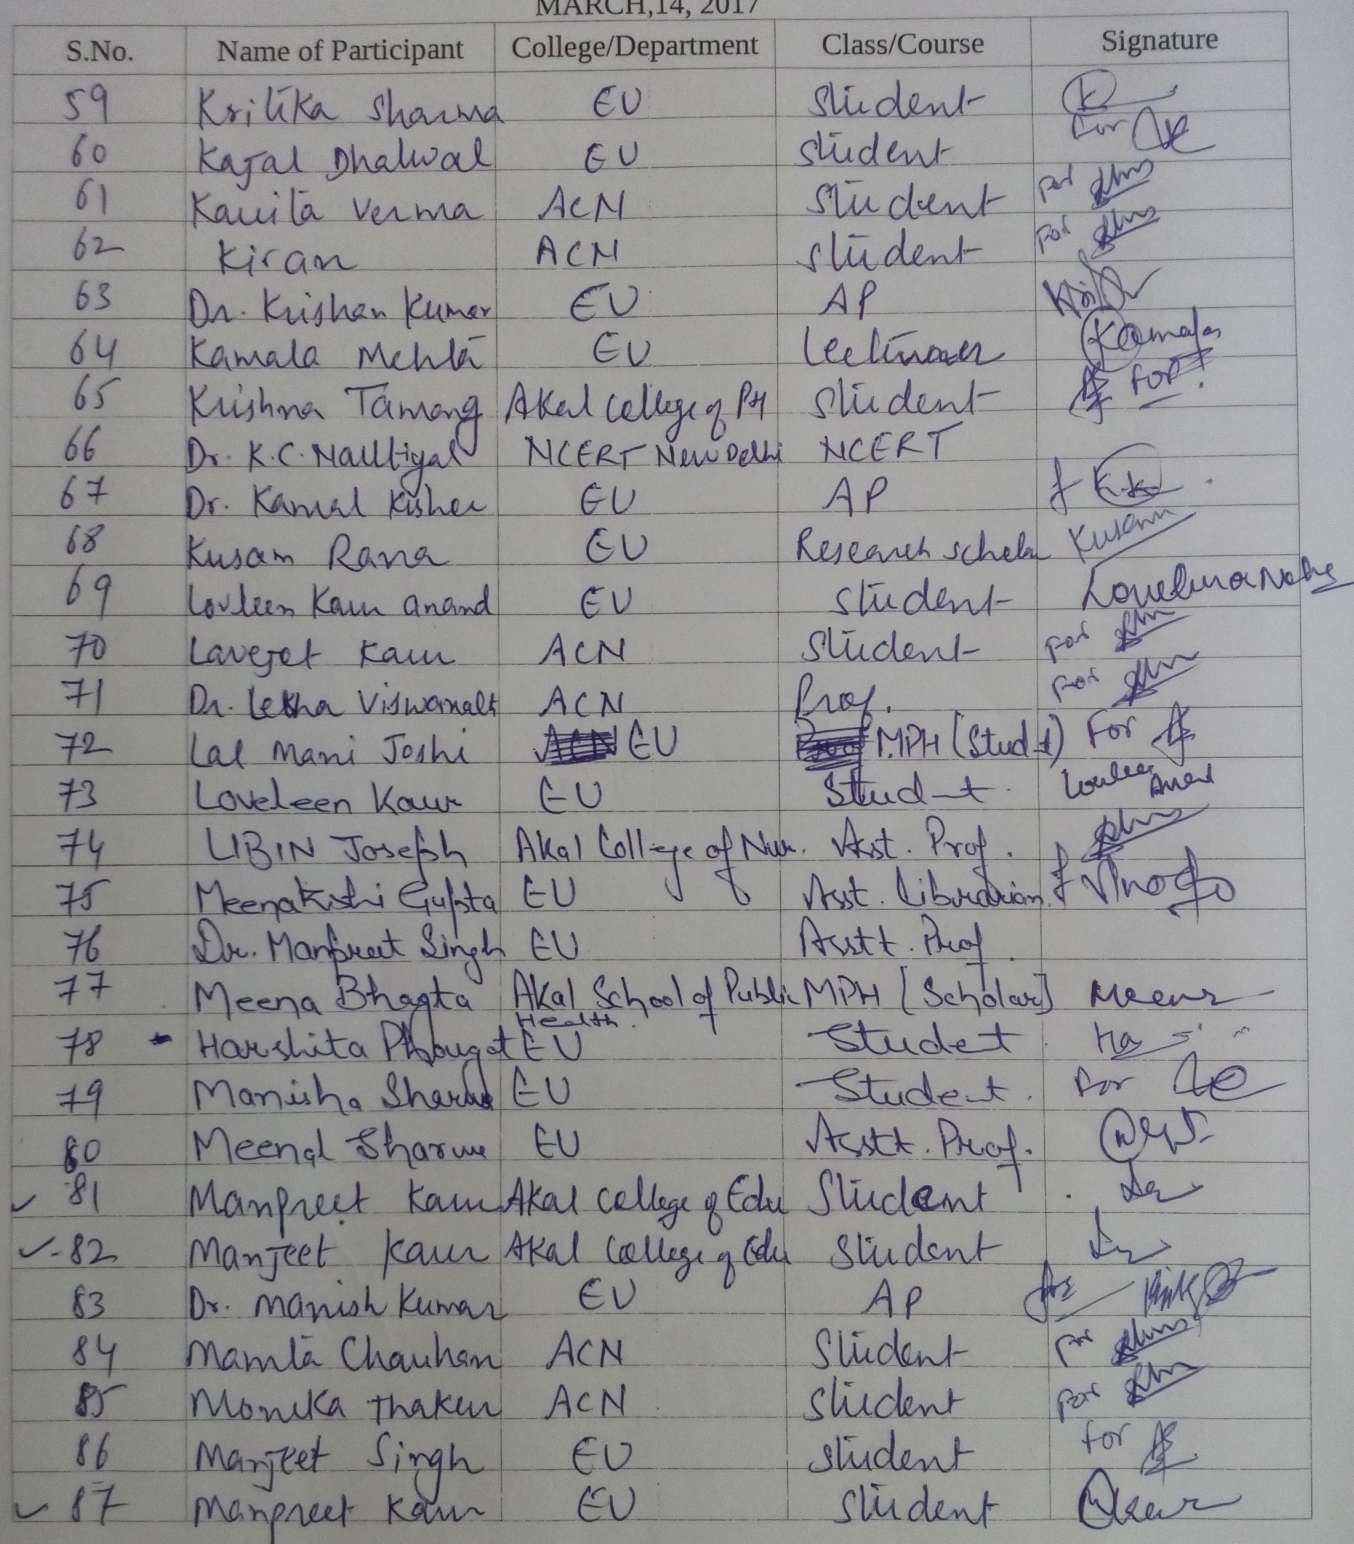 MARCH,14, 2017
S.No. Name of Participant College/Department Class/Course Signature
59 Kritika Sharma EU Student K
60 Kajal Dhalwal EU Student For
61 Kavita Verma ACN Student For
62 Kiran ACN Student For
63 Dr. Krishan Kumar EU AP
64 Kamala Mehta EU Lecturer Kamala
65 Krishna Tamang Akal College of PH Student For
66 Dr. K.C. Nautiyal NCERT New Delhi NCERT
67 Dr. Kamal Kisher EU AP K.K
68 Kusam Rana EU Research Scholar Kusam
69 Lovleen Kaur Anand EU Student
70 Lavejet Kaur ACN Student For
71 Dr. Lekha Viswanath ACN Prof. For
72 Lal Mani Joshi EU MPH (Stud-t) For
73 Loveleen Kaur EU Stud-t. Lovleen Anand
74 LIBIN Joseph Akal College of Nur. Asst. Prof.
75 Meenakshi Gupta EU Asst. Librarian
76 Dr. Manpreet Singh EU Asstt. Prof
77 Meena Bhagta Akal School of Public MPH [Scholar] Meena
Health.
78 Harshita Phougat EU Studet Ha
79 Manisha Sharma EU Student. For
80 Meenal Sharma EU Asstt. Prof.
81 Manpreet Kaur Akal College of Edu Student
82 Manjeet Kaur Akal College of Edu Student
83 Dr. Manish Kumar EU AP
84 Mamta Chauhan ACN Student For
85 Monika Thakur ACN Student For
86 Manjeet Singh EU Student For
87 Manpreet Kaur EU Student